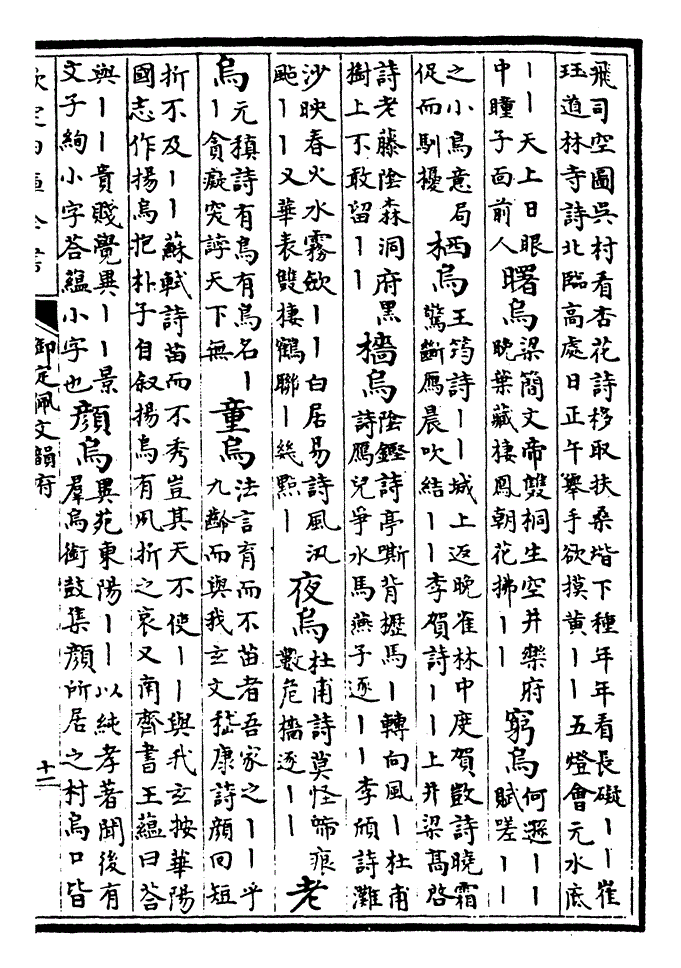 飛司空圖吳村看杏花詩移取扶桑堦下種年年看長礙丨丨崔
珏道林寺詩北臨高處日正午舉手欲摸黄丨丨五燈會元水底
丨丨天上日眼
中瞳子面前人
曙烏
梁簡文帝雙桐生空井樂府
晚葉藏棲鳳朝花拂丨丨
窮烏
何遜丨丨
賦嗟丨丨
之小鳥意局
促而馴擾
栖烏
王筠詩丨丨城上返晚雀林中度賀敳詩曉霜
驚斷鴈晨吹結丨丨李賀詩丨丨上井梁髙啓
詩老藤陰森洞府黑
樹上不敢留丨丨
檣烏
陰鏗詩亭嘶背櫪馬丨轉向風丨杜甫
詩鴈兒爭水馬燕子逐丨丨李頎詩灘
沙映春火水霧歛丨丨白居易詩風汛
颭丨丨又華表雙棲鶴聯丨幾點丨
夜烏
杜甫詩莫怪啼痕
數危檣逐丨丨
老
烏
元稹詩有鳥有鳥名丨
丨貪癡突誖天下無
童烏
法言育而不苗者吾家之丨丨乎
九齡而與我玄文嵇康詩顔回短
折不及丨丨蘇軾詩苗而不秀豈其天不使丨丨與我玄按華陽
國志作揚烏抱朴子自叙揚烏有夙折之哀又南齊書王藴曰荅
與丨丨貴賤覺異丨丨景
文子絢小字荅藴小字也
顔烏
異苑東陽丨丨以純孝著聞後有
羣烏銜鼓集顔所居之村烏口皆
欽定四庫全書
御定佩文韻府
十二